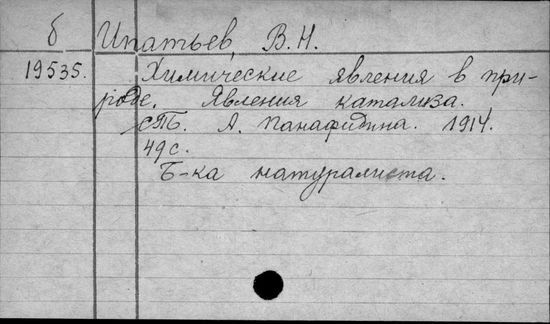 б Ипатьев, В.Н.
19535. Химические явления в при-
роде. Явления катализа.
СПБ. А. Панафидина. 1914.
49 с.
Б-ка натуралиста.